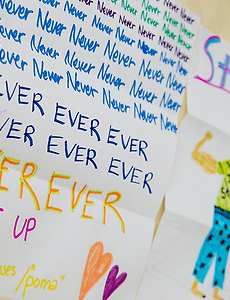 Never Never Never
Never Never Never Never
Never Never Never Never
Never Never Never Never Never
Never Never Never Never Never
Never Never Never Never Never
Never Never Never Never Never
EVER EVER EVER
VER EVER EVER
EREVER
UP
/"poma"
St